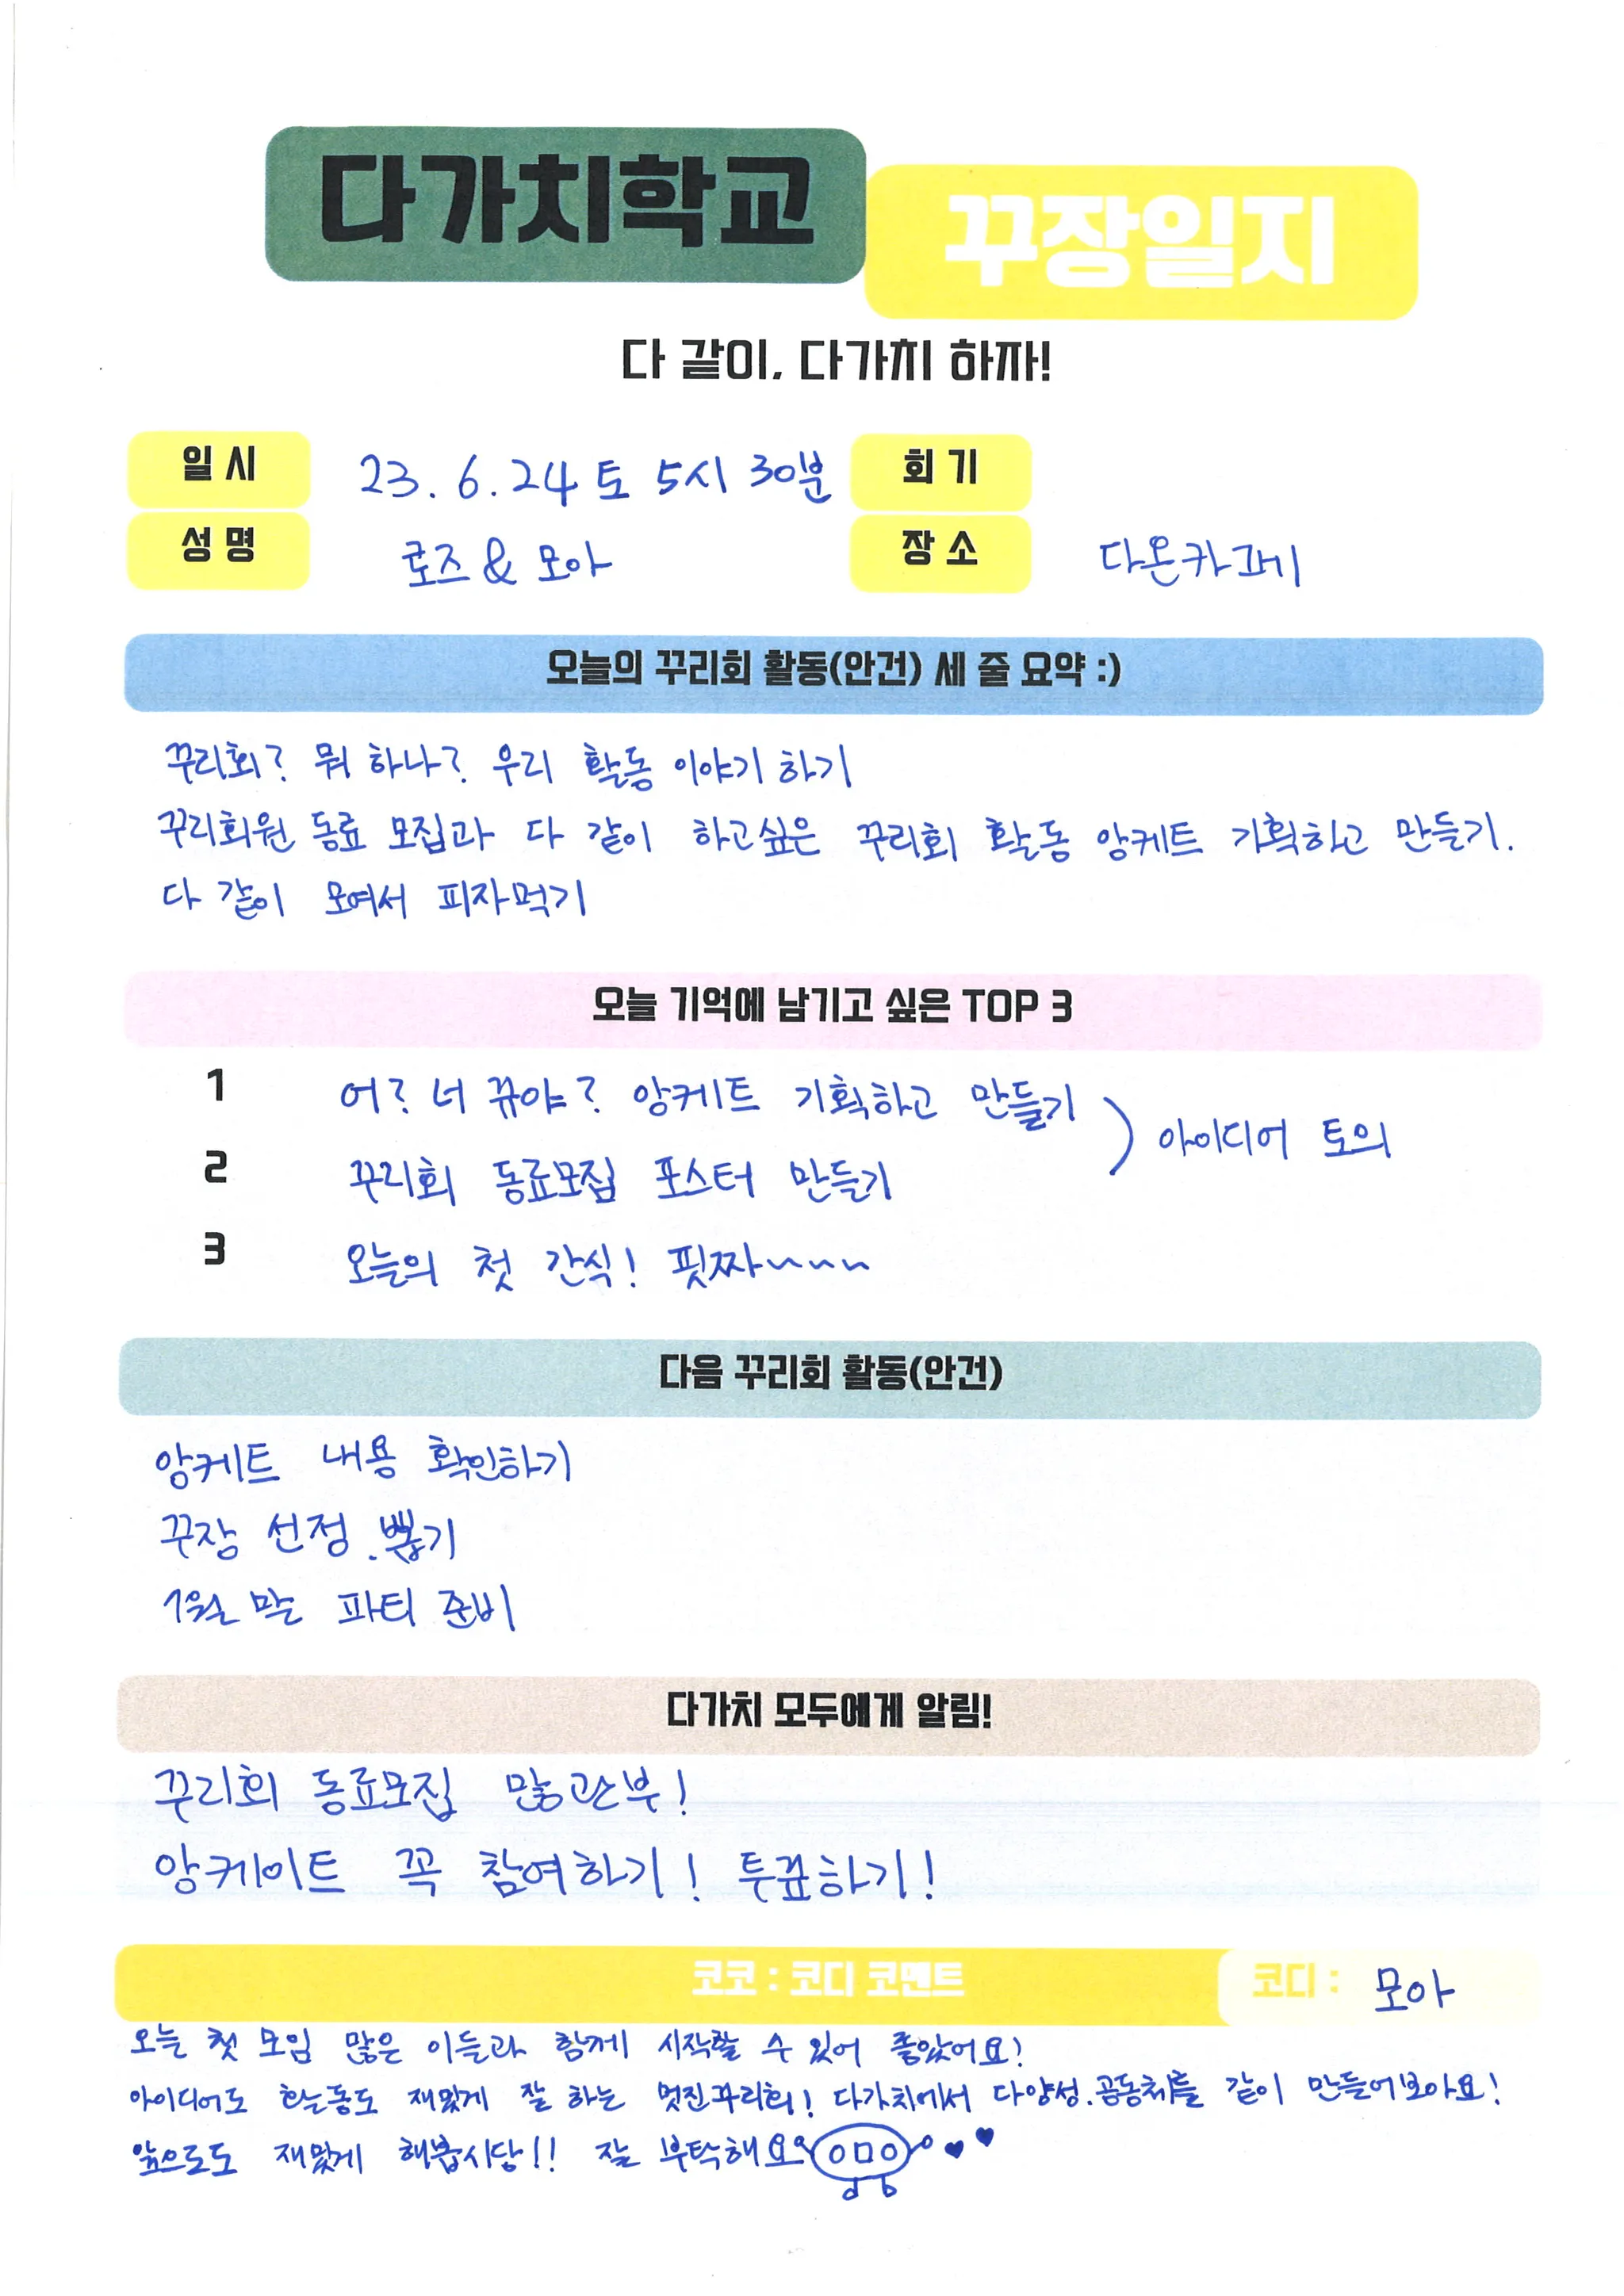 다가치학교 꾸장일지
다 같이, 다가치 하자!
일시 23. 6. 24 토 5시 30분 회기
성명 로즈 & 모아 장소 다온카페
오늘의 꾸리회 활동(안건) 세 줄 요약 :)
꾸리회? 뭐 하나? 우리 활동 이야기 하기
꾸리회원 동료 모집과 다 같이 하고싶은 꾸리회 활동 앙케트 기획하고 만들기.
다 같이 모여서 피자먹기
오늘 기억에 남기고 싶은 TOP 3
1 어? 너 뀨야? 앙케트 기획하고 만들기
) 아이디어 토의
2 꾸리회 동료모집 포스터 만들기
3 오늘의 첫 간식! 핏짜~~~
다음 꾸리회 활동(안건)
앙케트 내용 확인하기
꾸장 선정.뽑기
1월 말 파티 준비
다가치 모두에게 알림!
꾸리회 동료모집 많관부!
앙케이트 꼭 참여하기! 투표하기!
코코 : 코디 코멘트 코디 : 모아
오늘 첫 모임 많은 이들과 함께 시작할 수 있어 좋았어요!
아이디어도 활동도 재밌게 잘 하는 멋진꾸리회! 다가치에서 다양성.공동체를 같이 만들어보아요!
앞으로도 재밌게 해봅시당!! 잘 부탁해요